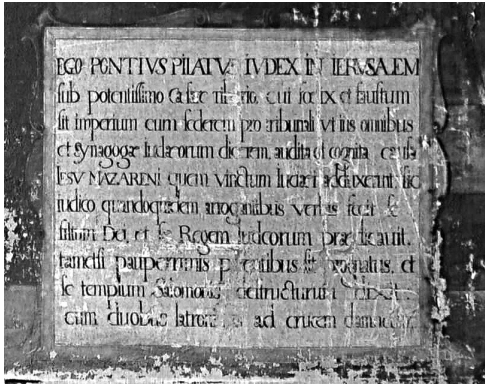 EGO PONTIVS PILATVS IVDEX IN IERVSALEM
sub potentissimo Caesare tiberio, cui foelix et faustum
sit imperium cum sederem pro tribunali vt ius omnibus
et synagogae Iudaeorum dicerem, audita et cognita causa
IESV NAZARENI quem vinctum Iudaei adduxerunt, sic
iudico quandoquidem arrogantibus verbis fecit se
filium Dei, et se Regem Iudeorum praedicauit,
tametsi pauperrimis parentibus sit prognatus, et
se templum Salomonis destructurum
cum duobus ad crucem